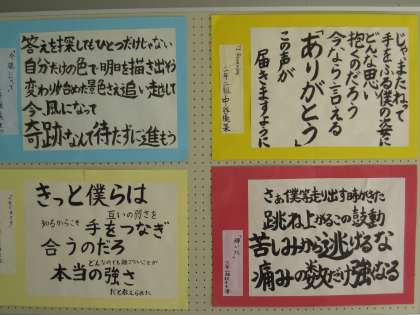 答えを探してもひとつだけじゃない
自分だけの色で明日を描き出そう
変わり始めた景色さえ追い越して
今、風になって
奇跡なんて待たずに進もう
じゃ、またねって
手をふる僕の姿に
どんな思い
抱くのだろう
今なら言える
「ありがとう」
この声が
届きますように
きっと僕らは
互いの弱さを
知るからこそ
手をつなぎ
合うのだろ
どんなものでも
本当の強さ
だと教えられた
さぁ僕等走り出す時がきた
跳ね上がるこの鼓動
苦しみから逃げるな
痛みの数だけ強くなる